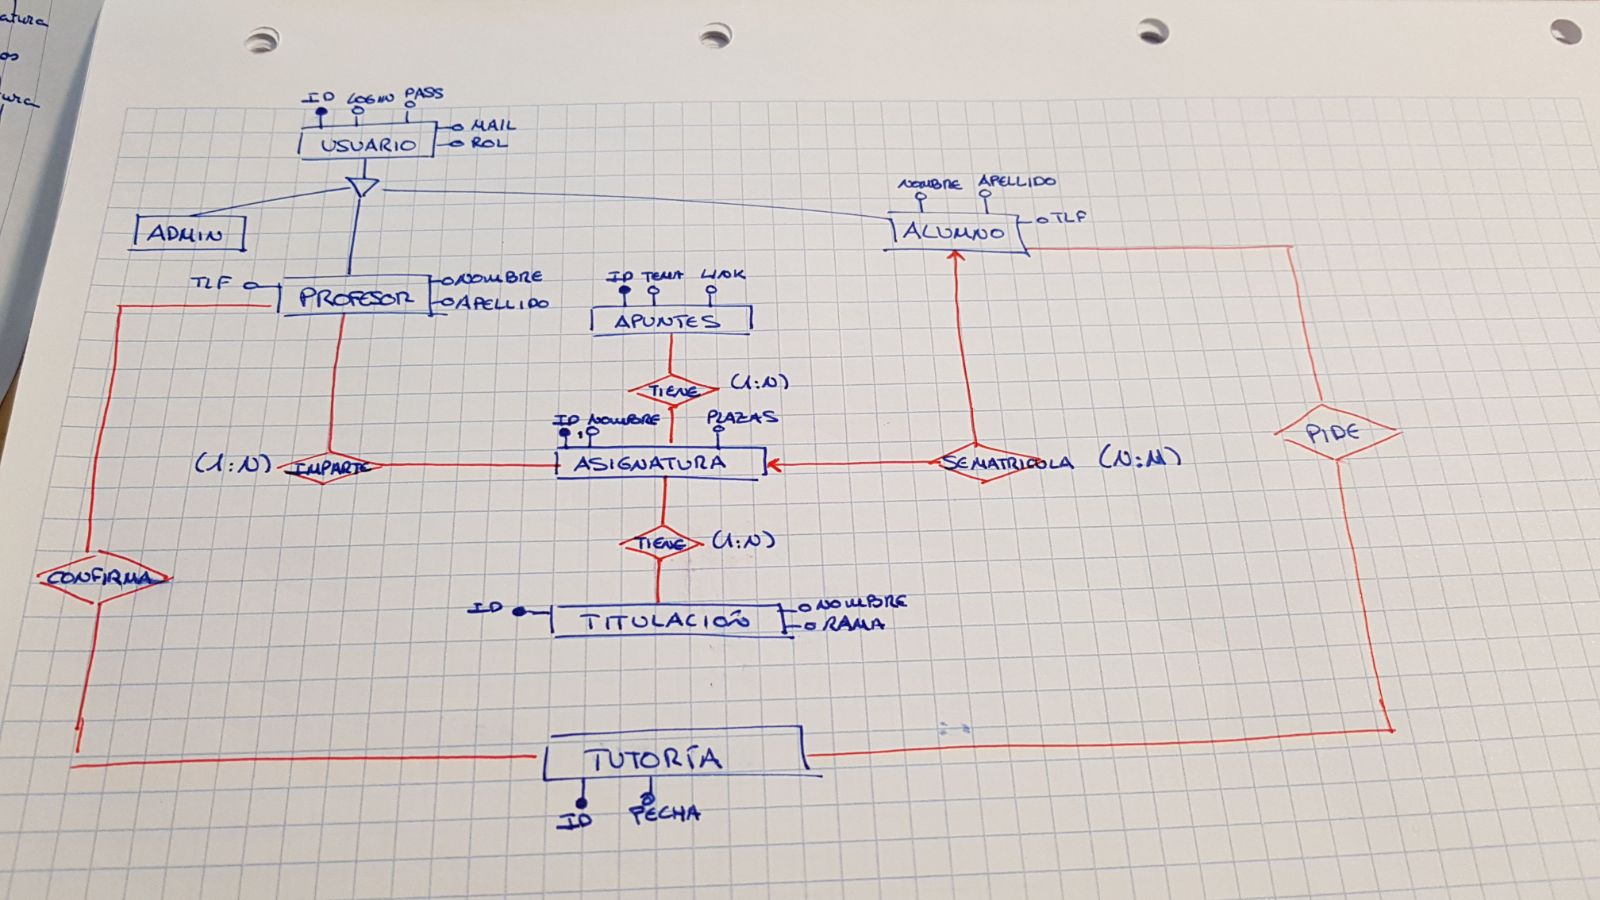 atura
os
tura
ID LOGIN PASS
USUARIO
MAIL
ROL
ADMIN
NOMBRE APELLIDO
ALUMNO
TLF
TLF
PROFESOR
NOMBRE
APELLIDO
ID TEMA LINK
APUNTES
TIENE (1:N)
ID NOMBRE PLAZAS
(1:N) IMPARTE
ASIGNATURA
SEMATRICULA (N:M)
PIDE
TIENE (1:N)
CONFIRMA
ID
TITULACIÓN
NOMBRE
RAMA
TUTORÍA
ID FECHA